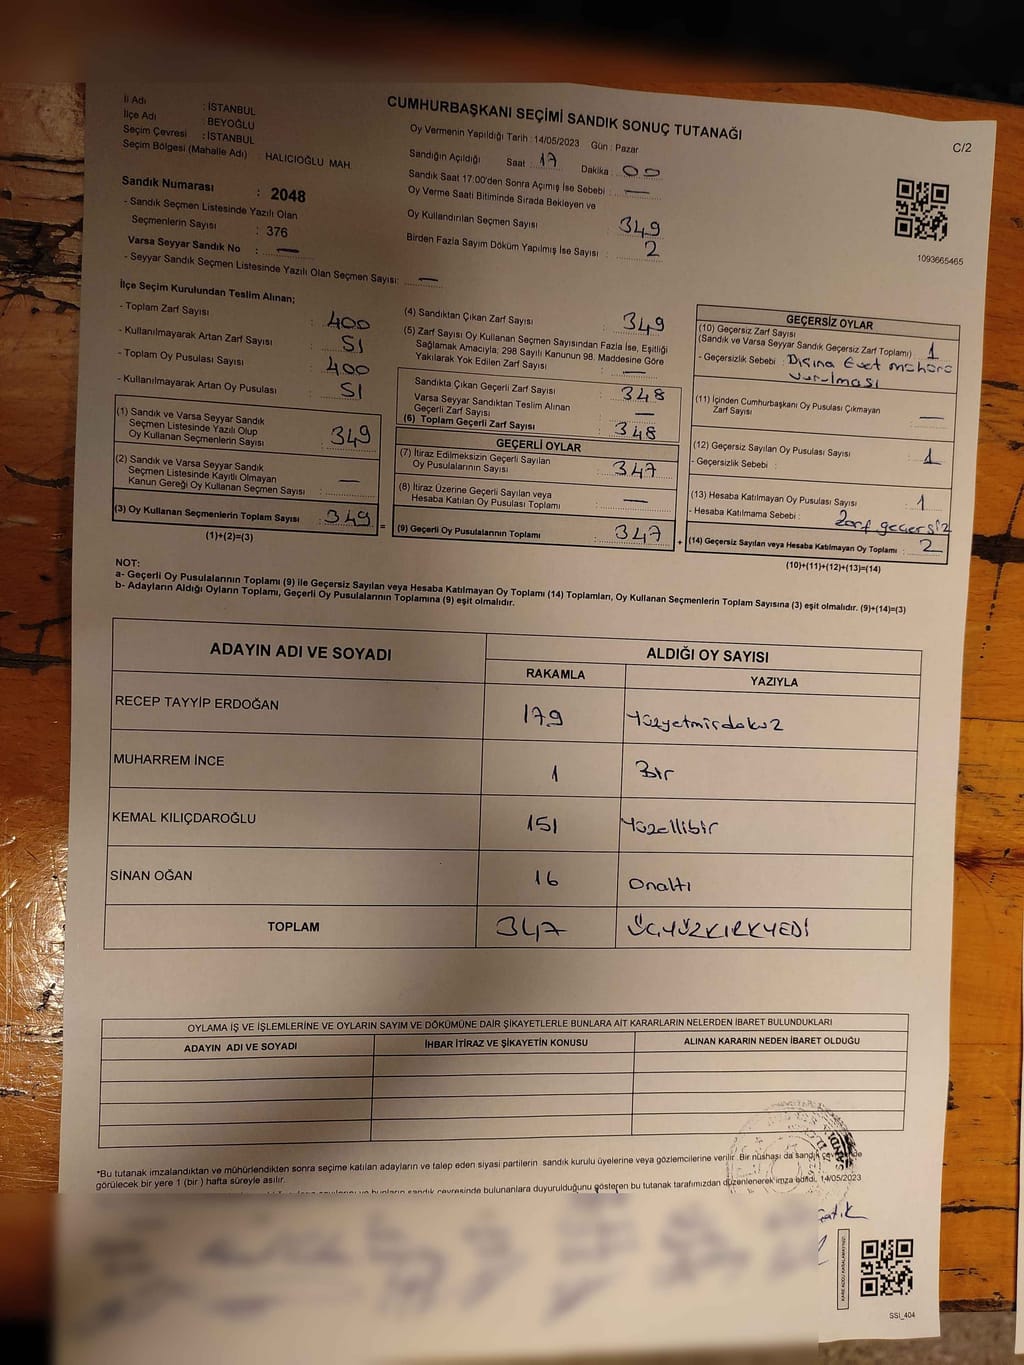 CUMHURBAŞKANI SEÇİMİ SANDIK SONUÇ TUTANAĞI
C/2
İl Adı : İSTANBUL
İlçe Adı : BEYOĞLU
Seçim Çevresi : İSTANBUL
Seçim Bölgesi (Mahalle Adı) : HALICIOĞLU MAH.
Sandık Numarası : 2048
- Sandık Seçmen Listesinde Yazılı Olan
Seçmenlerin Sayısı : 376
Varsa Seyyar Sandık No : —
- Seyyar Sandık Seçmen Listesinde Yazılı Olan Seçmen Sayısı: —
Oy Vermenin Yapıldığı Tarih : 14/05/2023 Gün : Pazar
Sandığın Açıldığı Saat : 17 Dakika : 00
Sandık Saat 17:00'den Sonra Açımış İse Sebebi : —
Oy Verme Saati Bitiminde Sırada Bekleyen ve
Oy Kullandırılan Seçmen Sayısı : 349
Birden Fazla Sayım Döküm Yapılmış İse Sayısı : 2
1093665465
İlçe Seçim Kurulundan Teslim Alınan;
- Toplam Zarf Sayısı : 400
- Kullanılmayarak Artan Zarf Sayısı : 51
- Toplam Oy Pusulası Sayısı : 400
- Kullanılmayarak Artan Oy Pusulası : 51
(1) Sandık ve Varsa Seyyar Sandık
Seçmen Listesinde Yazılı Olup
Oy Kullanan Seçmenlerin Sayısı : 349
(2) Sandık ve Varsa Seyyar Sandık
Seçmen Listesinde Kayıtlı Olmayan
Kanun Gereği Oy Kullanan Seçmen Sayısı : —
(3) Oy Kullanan Seçmenlerin Toplam Sayısı : 349 =
(1)+(2)=(3)
(4) Sandıktan Çıkan Zarf Sayısı : 349
(5) Zarf Sayısı Oy Kullanan Seçmen Sayısından Fazla İse, Eşitliği
Sağlamak Amacıyla; 298 Sayılı Kanunun 98. Maddesine Göre
Yakılarak Yok Edilen Zarf Sayısı : —
Sandıkta Çıkan Geçerli Zarf Sayısı : 348
Varsa Seyyar Sandıktan Teslim Alınan
Geçerli Zarf Sayısı : —
(6) Toplam Geçerli Zarf Sayısı : 348
GEÇERLİ OYLAR
(7) İtiraz Edilmeksizin Geçerli Sayılan
Oy Pusulalarının Sayısı : 347
(8) İtiraz Üzerine Geçerli Sayılan veya
Hesaba Katılan Oy Pusulası Toplamı : —
(9) Geçerli Oy Pusulalarının Toplamı : 347 +
GEÇERSİZ OYLAR
(10) Geçersiz Zarf Sayısı
(Sandık ve Varsa Seyyar Sandık Geçersiz Zarf Toplamı) : 1
- Geçersizlik Sebebi : Dışına Evet mührü
vurulması
(11) İçinden Cumhurbaşkanı Oy Pusulası Çıkmayan
Zarf Sayısı : —
(12) Geçersiz Sayılan Oy Pusulası Sayısı : 1
- Geçersizlik Sebebi :
(13) Hesaba Katılmayan Oy Pusulası Sayısı : 1
- Hesaba Katılmama Sebebi : Zarf geçersiz
(14) Geçersiz Sayılan veya Hesaba Katılmayan Oy Toplamı : 2
(10)+(11)+(12)+(13)=(14)
NOT:
a- Geçerli Oy Pusulalarının Toplamı (9) ile Geçersiz Sayılan veya Hesaba Katılmayan Oy Toplamı (14) Toplamları, Oy Kullanan Seçmenlerin Toplam Sayısına (3) eşit olmalıdır. (9)+(14)=(3)
b- Adayların Aldığı Oyların Toplamı, Geçerli Oy Pusulalarının Toplamına (9) eşit olmalıdır.
ADAYIN ADI VE SOYADI ALDIĞI OY SAYISI
RAKAMLA YAZIYLA
RECEP TAYYİP ERDOĞAN 179 Yüzyetmişdokuz
MUHARREM İNCE 1 Bir
KEMAL KILIÇDAROĞLU 151 Yüzellibir
SİNAN OĞAN 16 Onaltı
TOPLAM 347 ÜÇYÜZKIRKYEDİ
OYLAMA İŞ VE İŞLEMLERİNE VE OYLARIN SAYIM VE DÖKÜMÜNE DAİR ŞİKAYETLERLE BUNLARA AİT KARARLARIN NELERDEN İBARET BULUNDUKLARI
ADAYIN ADI VE SOYADI İHBAR İTİRAZ VE ŞİKAYETİN KONUSU ALINAN KARARIN NEDEN İBARET OLDUĞU
*Bu tutanak imzalandıktan ve mühürlendikten sonra seçime katılan adayların ve talep eden siyasi partilerin sandık kurulu üyelerine veya gözlemcilerine verilir. Bir nüshası da sandık
görülecek bir yere 1 (bir) hafta süreyle asılır.
bunların sandık çevresinde bulunanlara duyurulduğunu gösteren bu tutanak tarafımızdan düzenlenerek imza edildi. 14/05/2023
SSI_404